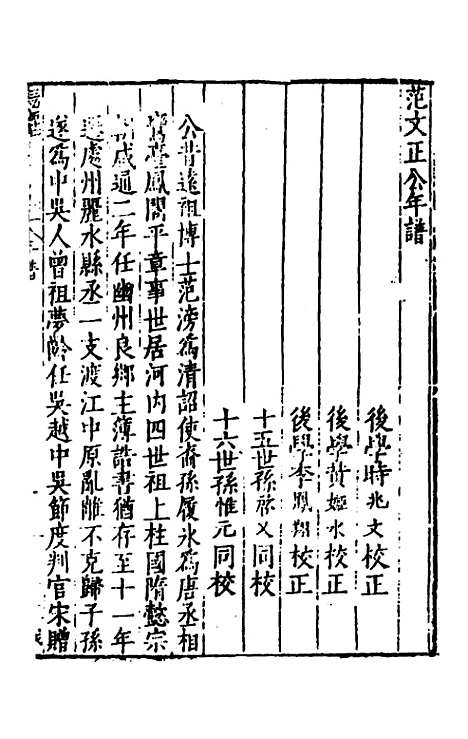 范文正公年譜
後學時兆文校正
後學黃姬水校正
後學李鳳翔校正
十五世孫啟乂同校
十六世孫惟元同校
公昔遠祖博士范滂爲清詔使裔孫履氷爲唐丞相
鸞臺鳳閣平章事世居河內四世祖上柱國隋懿宗
咸通二年任幽州良鄉主薄誥書猶存至十一年
遷處州麗水縣丞一支渡江中原亂離不克歸子孫
遂爲中吳人曾祖夢齡任吳越中吳節度判官宋贈